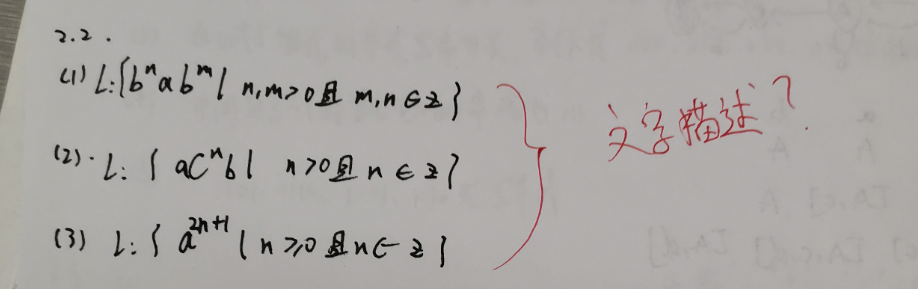 2.2.
(1) L:{bⁿabᵐ| n,m>0且 m,n∈z}
文字描述?
(2). L: { aCⁿb| n>0且 n∈z}
(3) L: { a²ⁿ⁺¹ | n≥0且n∈z}